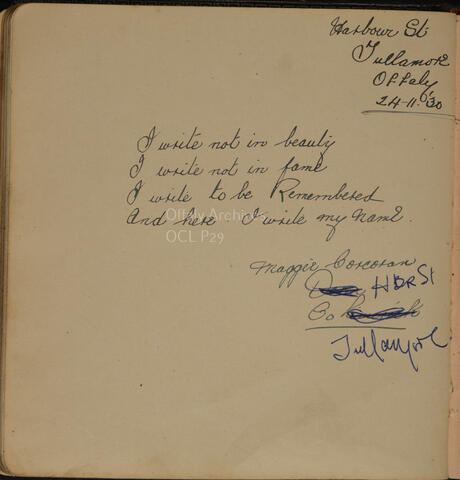 Harbour St.
Tullamore
Offaly
24-11-'30
I write not in beauty
I write not in fame
I write to be Remembered
And here I write my name.
Offaly Archives
OCL P29
Maggie Corcoran
HBR St
Co
Tullamore